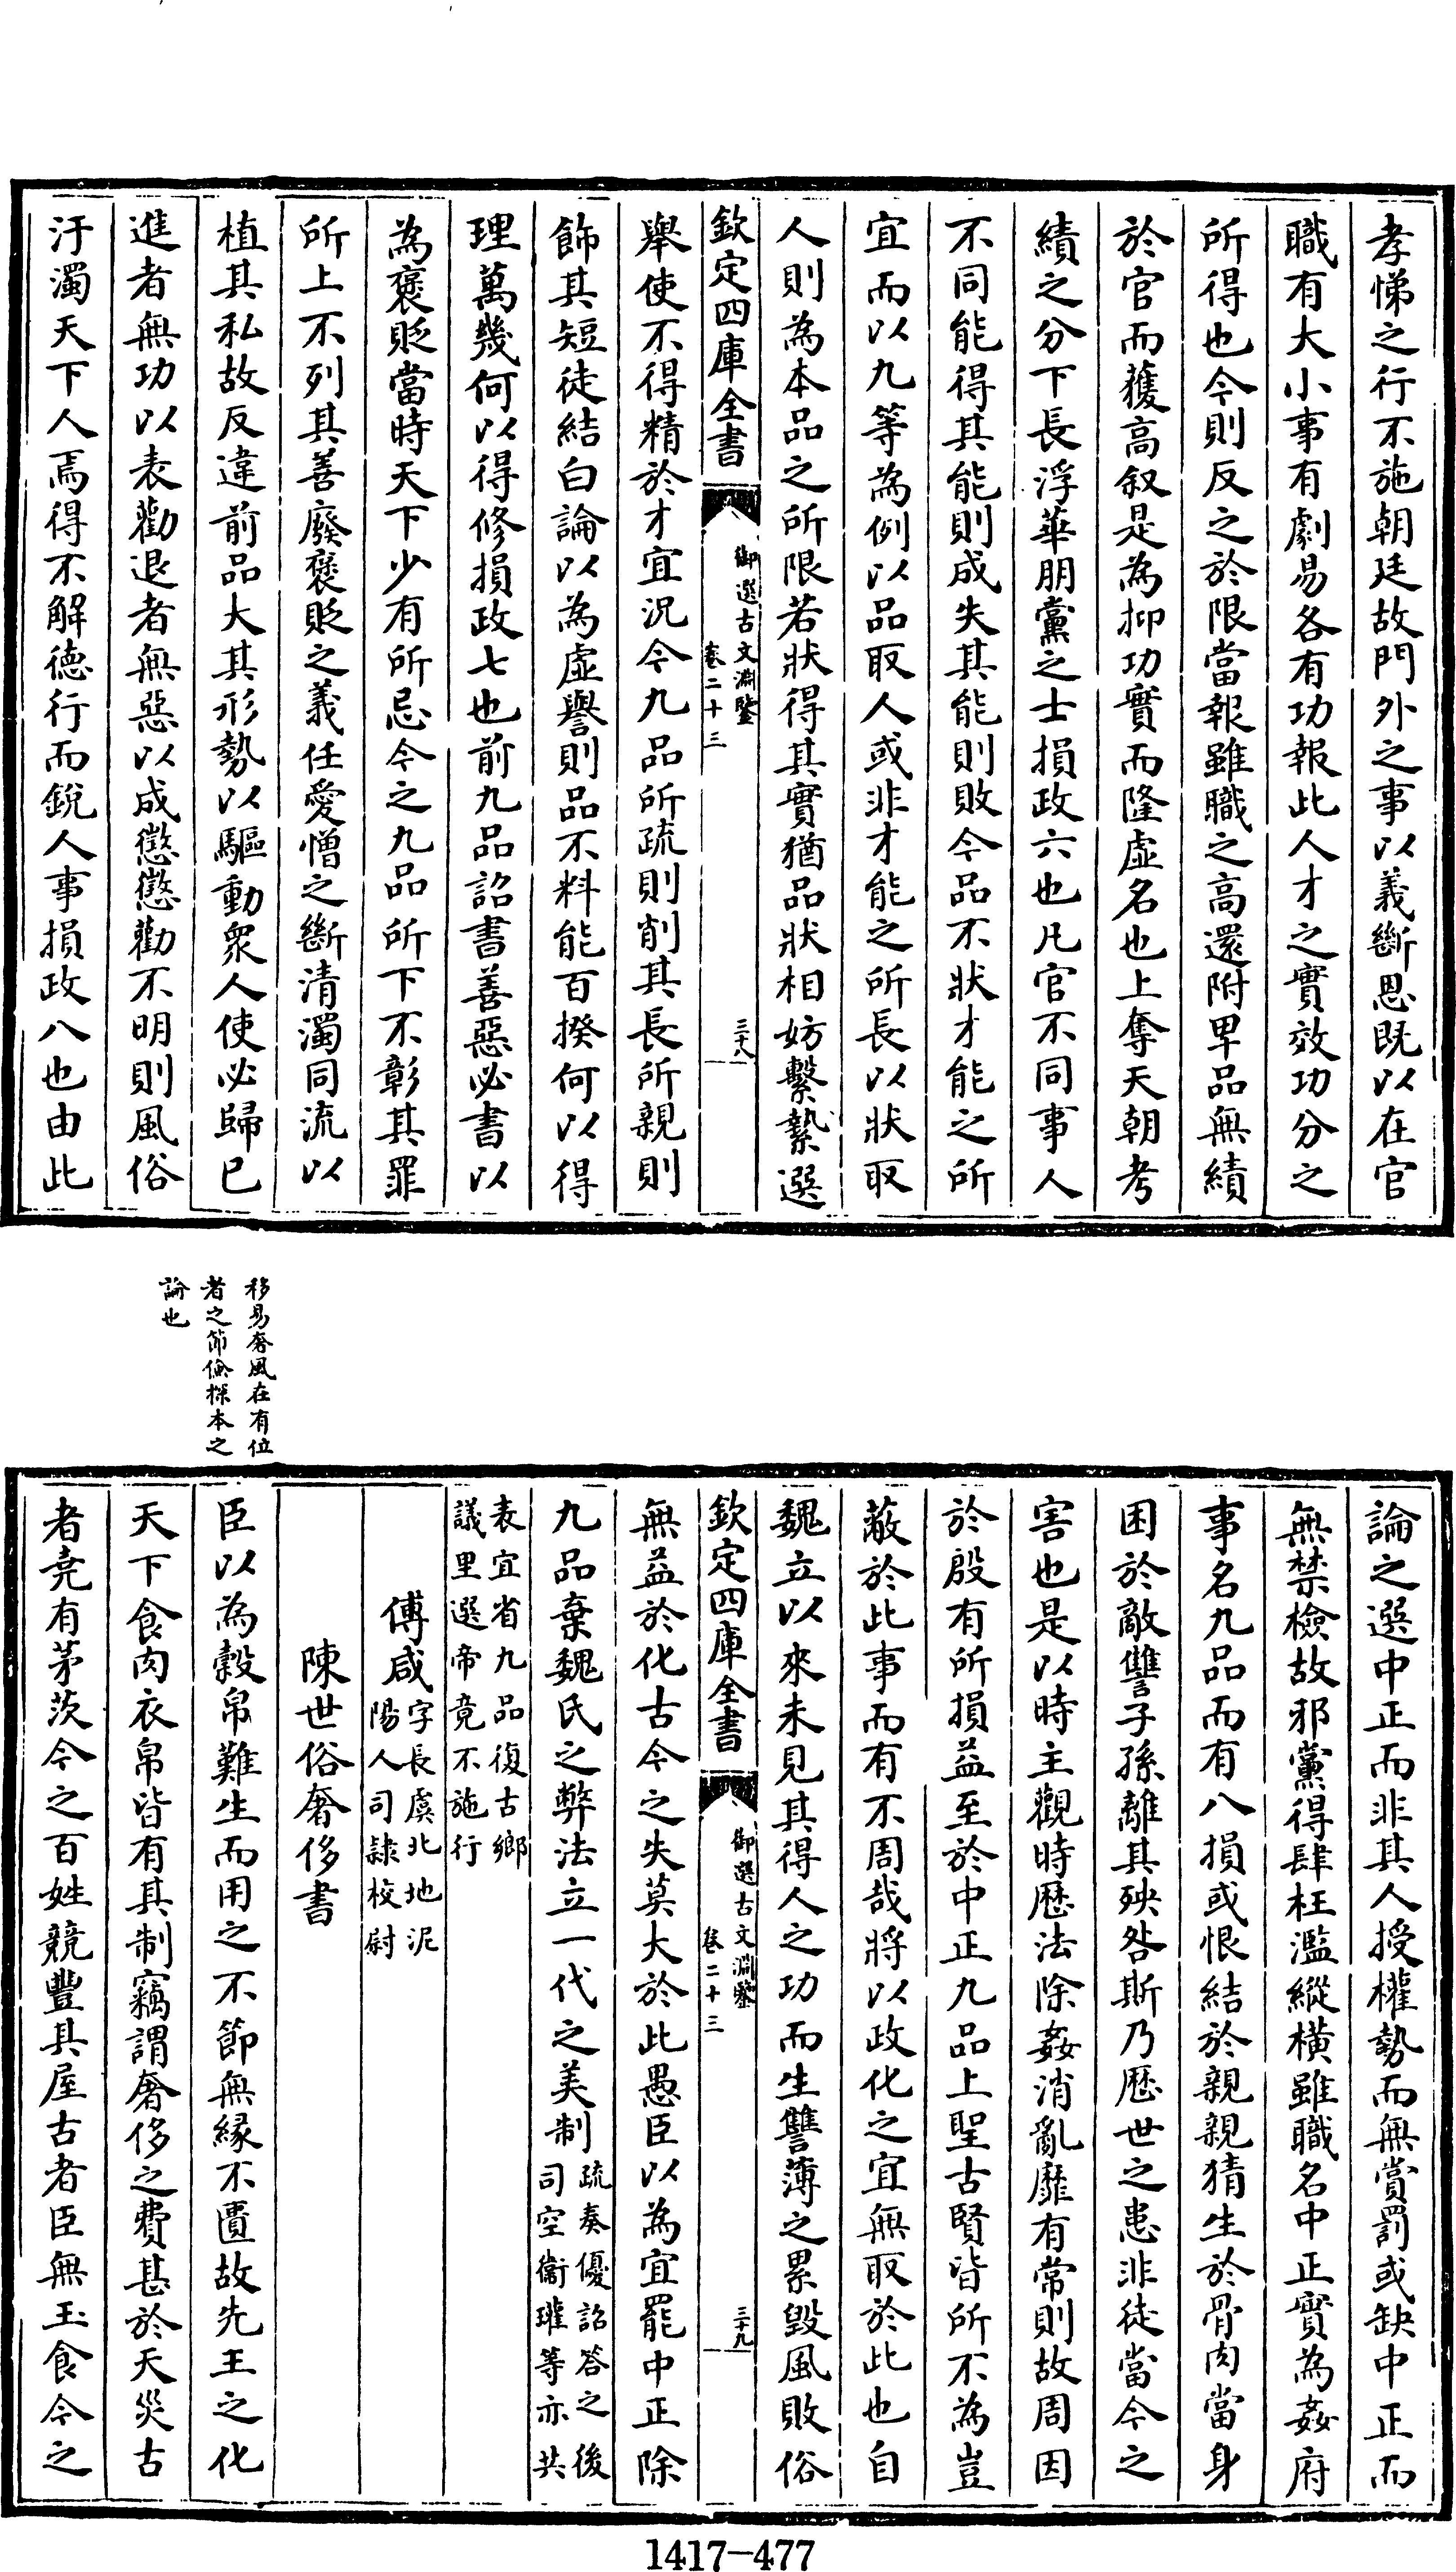 孝悌之行不施朝廷故門外之事以義斷恩既以在官
職有大小事有劇易各有功報此人才之實效功分之
所得也今則反之於限當報雖職之高還附卑品無績
於官而獲高叙是為抑功實而隆虚名也上奪天朝考
績之分下長浮華朋黨之士損政六也凡官不同事人
不同能得其能則成失其能則敗今品不狀才能之所
宜而以九等為例以品取人或非才能之所長以狀取
人則為本品之所限若狀得其實猶品狀相妨繫縶選
欽定四庫全書
御選古文淵鑒
卷二十三
三十八
舉使不得精於才宜況今九品所疏則削其長所親則
飾其短徒結白論以為虚譽則品不料能百揆何以得
理萬幾何以得修損政七也前九品詔書善惡必書以
為襃貶當時天下少有所忌今之九品所下不彰其罪
所上不列其善廢襃貶之義任愛憎之斷清濁同流以
植其私故反違前品大其形勢以驅動衆人使必歸已
進者無功以表勸退者無惡以成懲懲勸不明則風俗
汙濁天下人焉得不解德行而銳人事損政八也由此
移易奢風在有位
者之節儉探本之
論也
論之選中正而非其人授權勢而無賞罰或缺中正而
無禁檢故邪黨得肆枉濫縱横雖職名中正實為姦府
事名九品而有八損或恨結於親親猜生於骨肉當身
困於敵讐子孫離其殃咎斯乃歷世之患非徒當今之
害也是以時主觀時歷法除姦消亂靡有常則故周因
於殷有所損益至於中正九品上聖古賢皆所不為豈
蔽於此事而有不周哉將以政化之宜無取於此也自
魏立以來未見其得人之功而生讐薄之累毀風敗俗
欽定四庫全書
御選古文淵鑒
卷二十三
三十九
無益於化古今之失莫大於此愚臣以為宜罷中正除
九品棄魏氏之弊法立一代之美制疏奏優詔答之後司空衞瓘等亦共
表宜省九品復古鄉議里選帝竟不施行
傅咸字長虞北地泥陽人司隷校尉
陳世俗奢侈書
臣以為穀帛難生而用之不節無縁不匱故先王之化
天下食肉衣帛皆有其制竊謂奢侈之費甚於天災古
者堯有茅茨今之百姓競豐其屋古者臣無玉食今之
1417-477